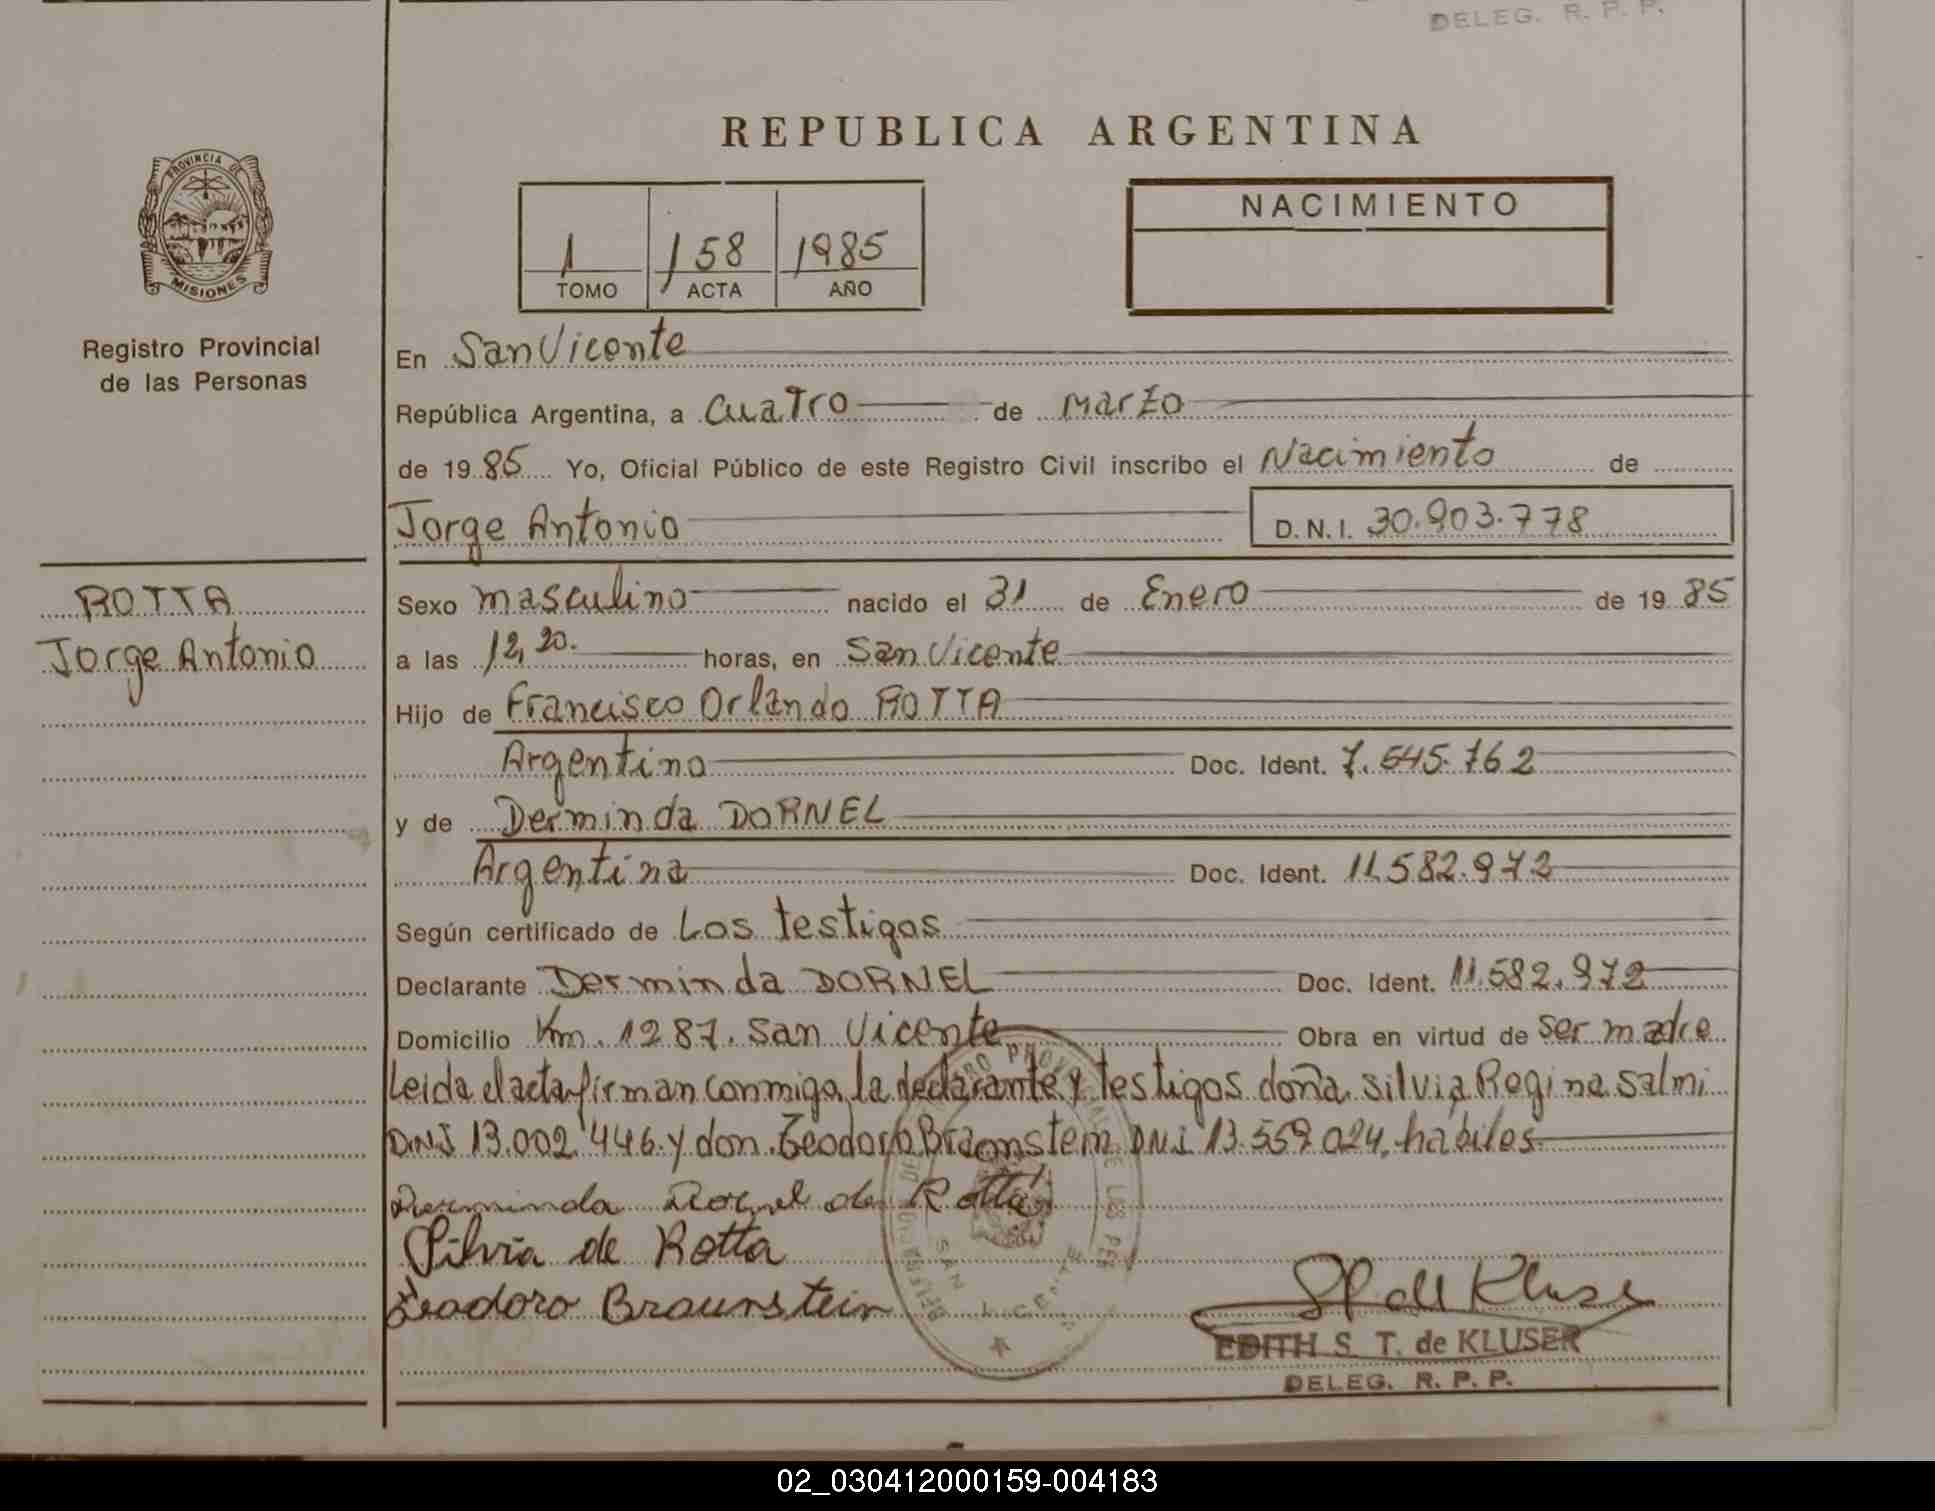 DELEG. R. P. P.
REPUBLICA ARGENTINA
PROVINCIA DE
MISIONES
Registro Provincial
de las Personas
1 158 1985
TOMO ACTA AÑO
NACIMIENTO
En San Vicente
República Argentina, a cuatro de marzo
de 1985 Yo, Oficial Público de este Registro Civil inscribo el Nacimiento de
Jorge Antonio D.N.I. 30.903.778
ROTTA
Jorge Antonio
Sexo masculino nacido el 31 de Enero de 1985
a las 12,20. horas, en San Vicente
Hijo de Francisco Orlando ROTTA
Argentino Doc. Ident. 7.645.762
y de Derminda DORNEL
Argentina Doc. Ident. 11.582.972
Según certificado de Los testigos
Declarante Derminda DORNEL Doc. Ident. 11.582.972
Domicilio Km. 1287. San Vicente Obra en virtud de ser madre
Leida el acta firman conmigo, la declarante y testigos doña Silvia Regina Salmi
DNI 13.002.446 y don Teodoro Braonstein DNI 13.559.024, habiles
Derminda Dornel de Rotta
Silvia de Rotta
Teodoro Braunstein
EDITH S. T. de KLUSER
DELEG. R. P. P.
02_030412000159-004183